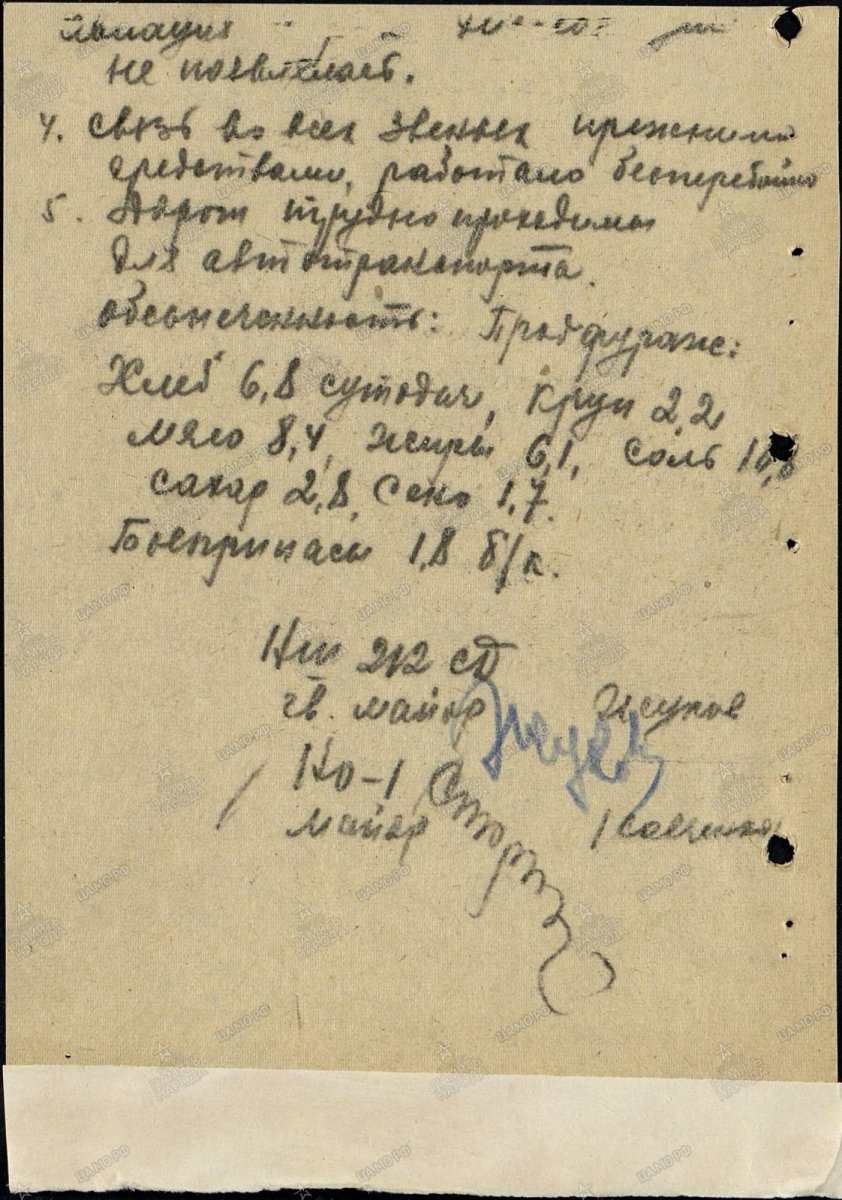 не появлялась.
4. Связь во всех звеньях прежними
средствами, работала бесперебойно
5. Дороги трудно проходимы
для автотранспорта.
обеспеченность: Продфураж:
Хлеб 6,8 сутодач, круп 2,2
мясо 8,4, жиры 6,1, соль 10,8
сахар 2,8, Сено 1,7.
Боеприпасы 1,8 б/к.
НШ 212 СД
гв. майор Жуков
НО-1
майор